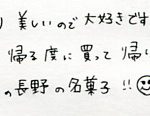 り 美しいので 大好きです
帰る度に買って 帰い
の長野の名菓子 !!